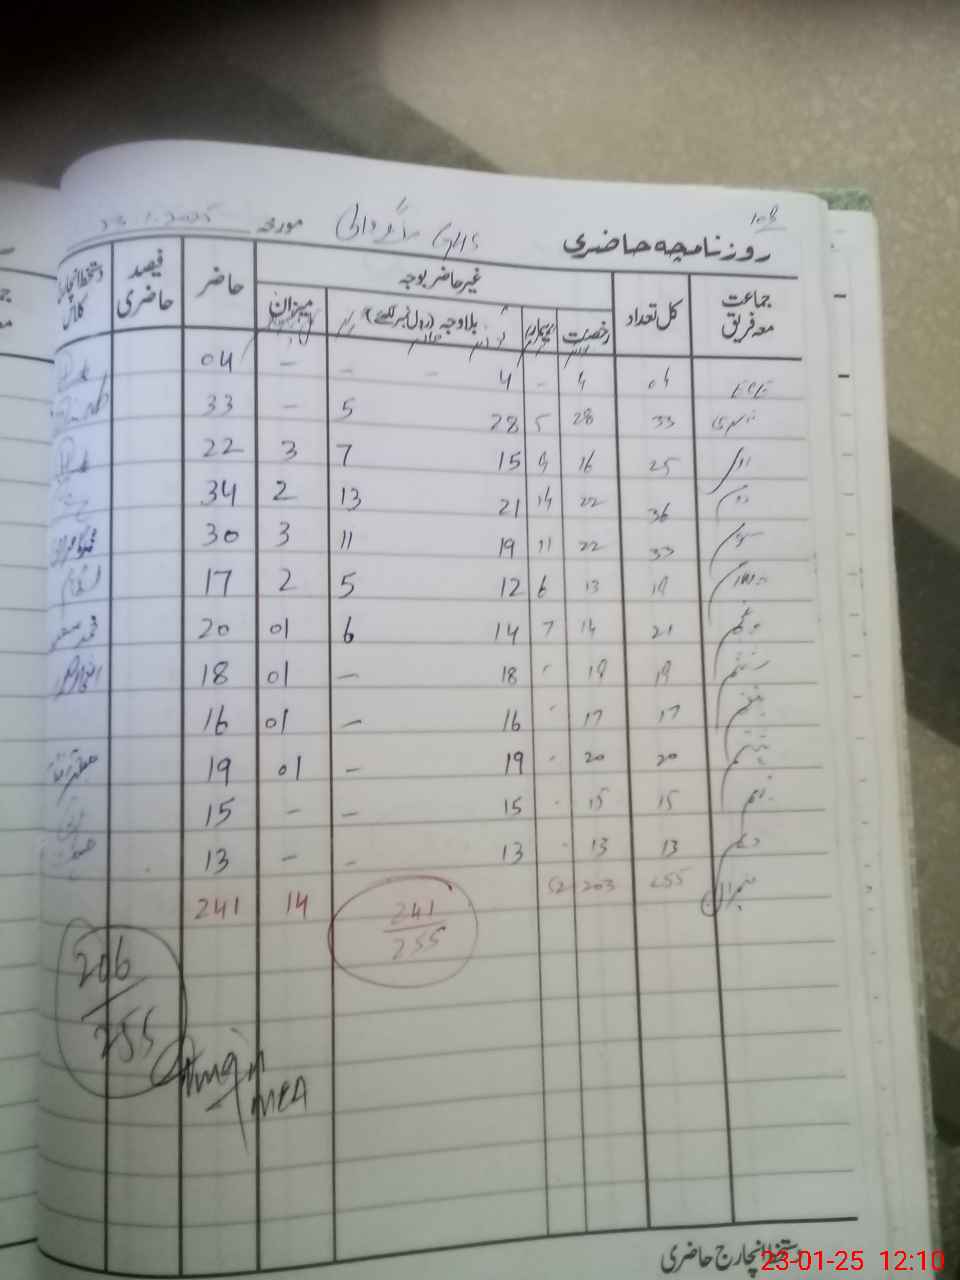 108
روزنامچہ حاضری مورخہ 23.1.2025
جماعت معہ فریق کل تعداد غیر حاضر بوجہ حاضر فیصد حاضری دستخط انچارج کلاس
رخصت بیماری بلاوجہ (رول نمبر لکھئے) میزان
ECE 04 4 - 4 - - 04
نرسری 33 28 5 28 5 - 33
اول 25 16 9 15 7 3 22
دوم 36 22 14 21 13 2 34
سوم 33 22 11 19 11 3 30
چہارم 19 13 6 12 5 2 17
پنجم 21 14 7 14 6 01 20
ششم 19 19 - 18 - 01 18
ہفتم 17 17 - 16 - 01 16
ہشتم 20 20 - 19 - 01 19
نہم 15 15 - 15 - - 15
دہم 13 13 - 13 - - 13
میزان 255 203 52 241/255 14 241
206/255
MEA
دستخط انچارج حاضری
23-01-25 12:10